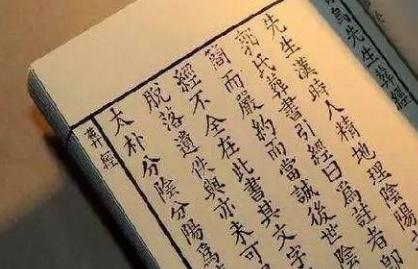 烏先生葬經
先生漢時人精地理陰陽
郭氏葬書引經曰為註者即
簡而嚴約而當誠後世陰
經不全在此書其文字
脫落遺佚與亦未可
大朴分陰分陽為
葬經